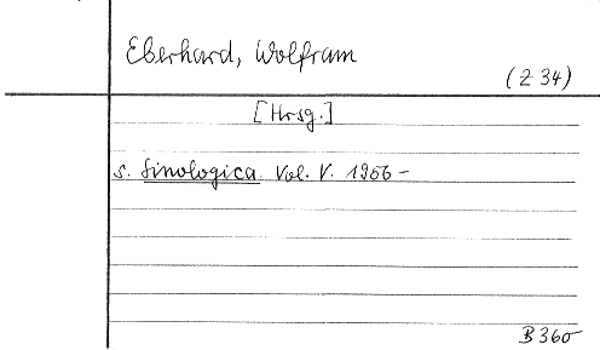 Eberhard, Wolfram
(Z 34)
[Hrsg.]
s. Sinologica. Vol. V. 1956 -
B 360